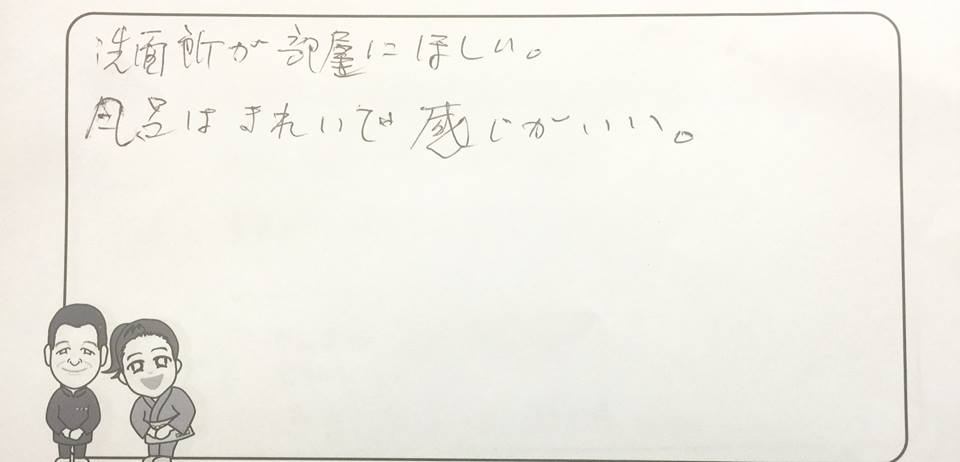 洗面所が部屋にほしい。
風呂はきれいで感じがいい。